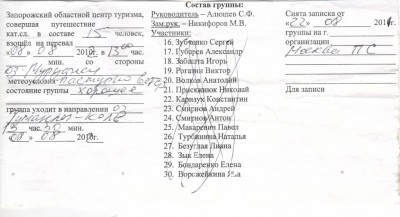 Запорожский областной центр туризма,
совершая путешествие
кат.сл. в составе 15 человек,
взошла на перевал
«08» 08 201 г. в 13 час.
мин. со стороны
метеоусловия пасмурно ветер
состояние группы хорошее
группа уходит в направлении
13 час. 30 мин
«08» 08 201 г.
Состав группы:
Руководитель – Алюшев С.Ф.
Зам.рук. – Никифоров М.В.
16. Зубченко Сергей
17. Губарев Александр
18. Забашта Игорь
19. Рогатин Виктор
20. Волков Анатолий
21. Присяжнюк Николай
22. Карнаух Константин
23. Смирнов Андрей
24. Смирнов Антон
25. Макаревич Павел
26. Турбинина Наталья
27. Безуглая Диана
28. Зык Елена
29. Бондаренко Елена
30. Ворожейкина Яна
Снята записка от
«22» 08 201 г.
группы на г.
организации
Москва П С
Для записи